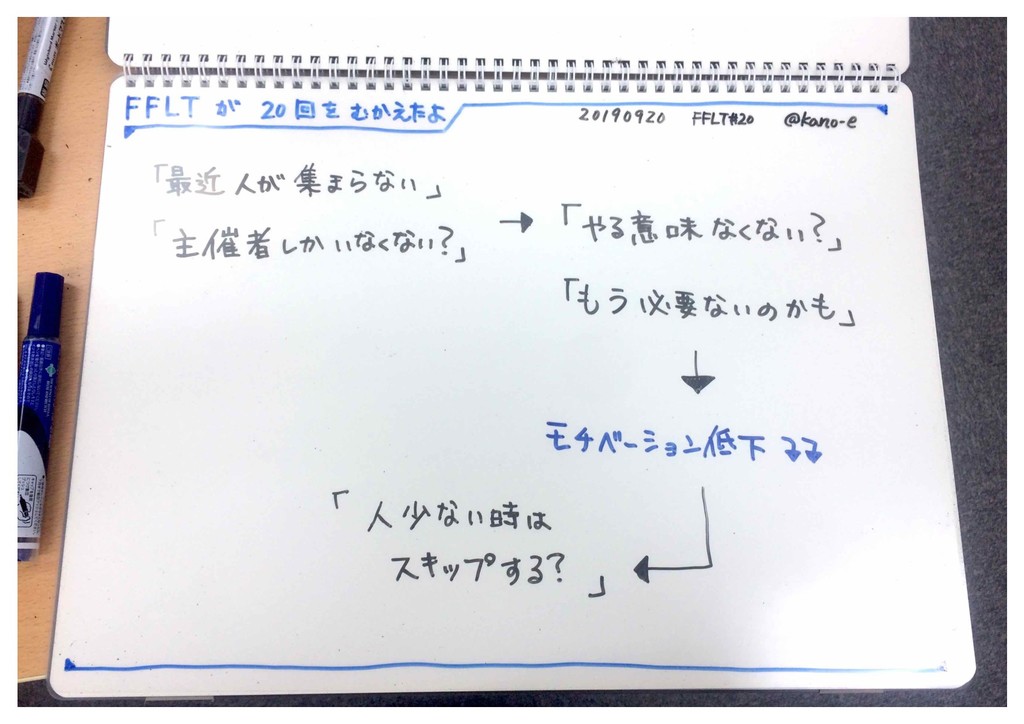 FFLTが 20回をむかえたよ
20190920 FFLT#20 @kano-e
「最近人が集まらない」
「主催者しかいなくない?」
→
「やる意味なくない?」
「もう必要ないのかも」
モチベーション低下
「人少ない時は
スキップする?」